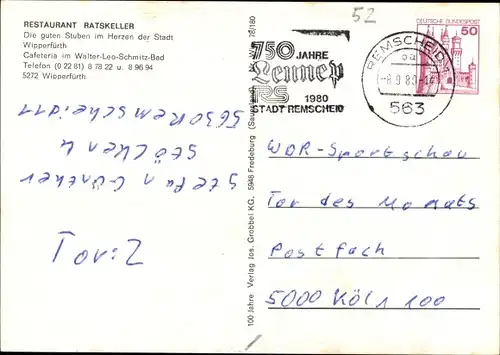 RESTAURANT RATSKELLER
Die guten Stuben im Herzen der Stadt
Wipperfürth
Cafeteria im Walter-Leo-Schmitz-Bad
Telefon (0 22 61) 8 78 22 u. 8 96 94
5272 Wipperfürth
5630 Remscheid 11
Stöcken 4
Stefan Günther
Tor: 2
100 Jahre Verlag Jos. Grobbel KG. 5948 Fredeburg 78/180
52
750 JAHRE
Lennep
RS
1980
STADT REMSCHEID
REMSCHEID 1
563
DEUTSCHE BUNDESPOST
50
WDR-Sportschau
Tor des Monats
Postfach
5000 Köln 100